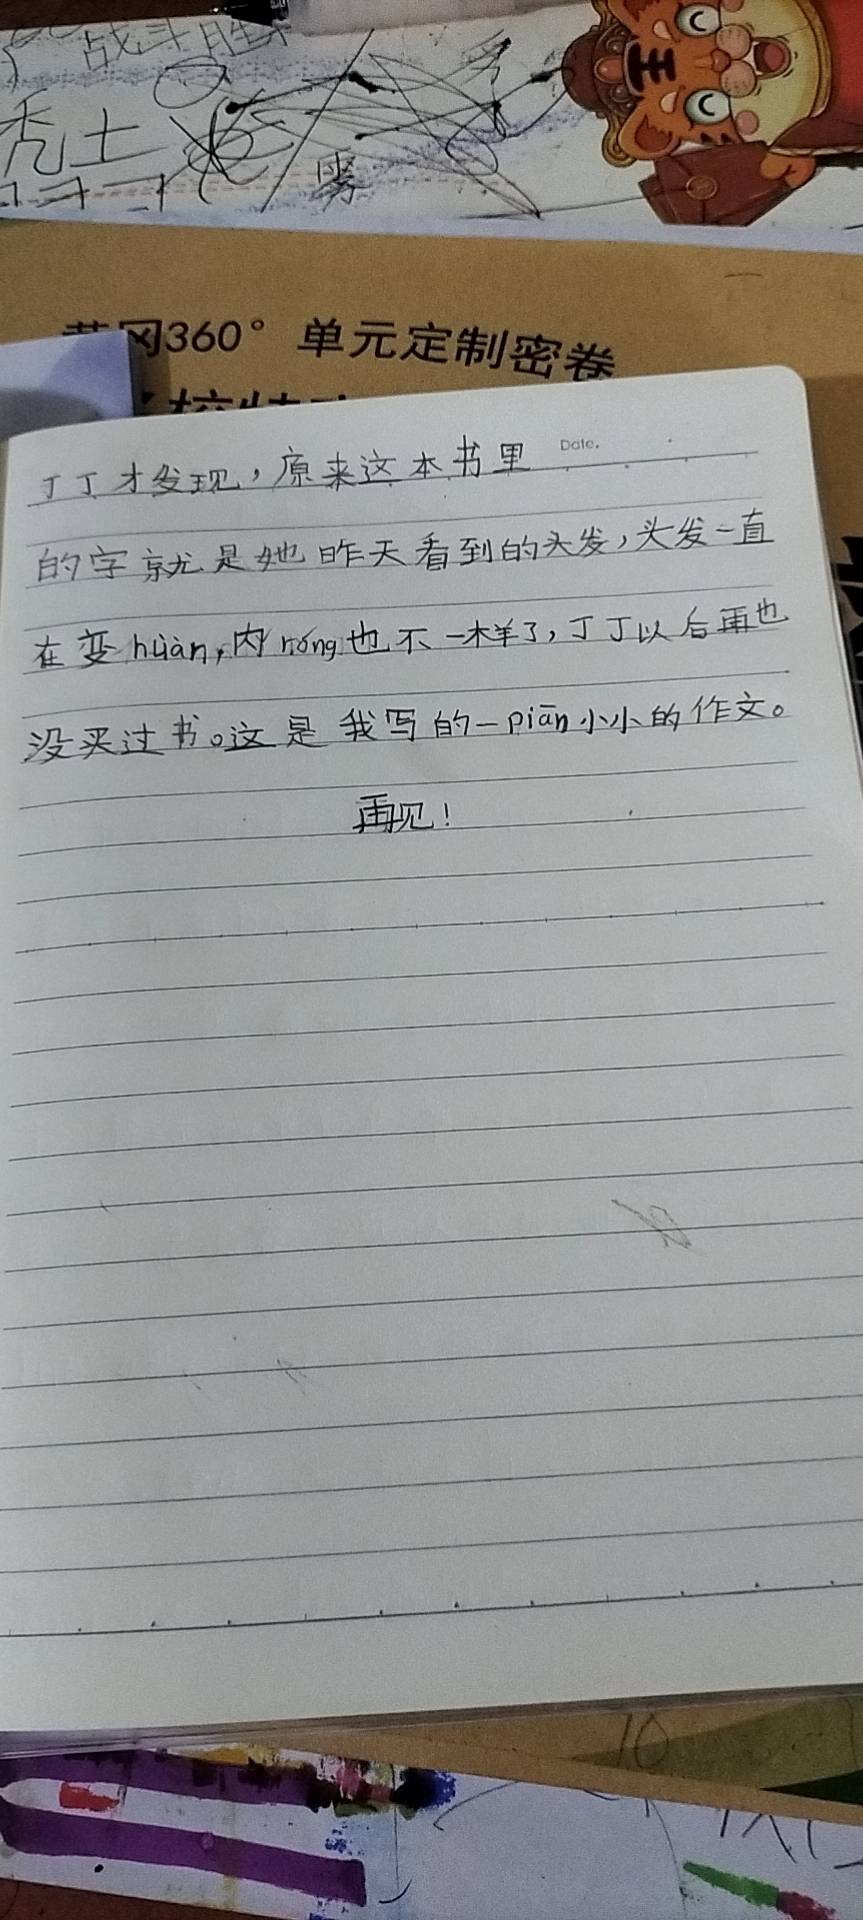 战斗
秃土
雾
王
黄冈360°单元定制密卷
Date.
丁丁才发现，原来这本书里
的字就是她昨天看到的头发，头发一直
在变huàn，内róng也不一样了，丁丁以后再也
没买过书。这是我写的一piān小小的作文。
再见！
10